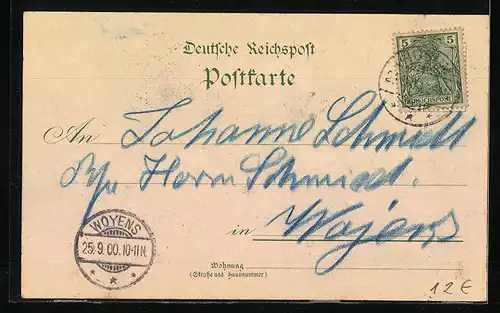 Deutsche Reichspost
Postkarte
5 5
An Johanne Schmidt
Herrn Schmidt.
in Wojens
WOYENS
25.9.00.10-11N.
Wohnung
(Straße und Hausnummer)
12 €